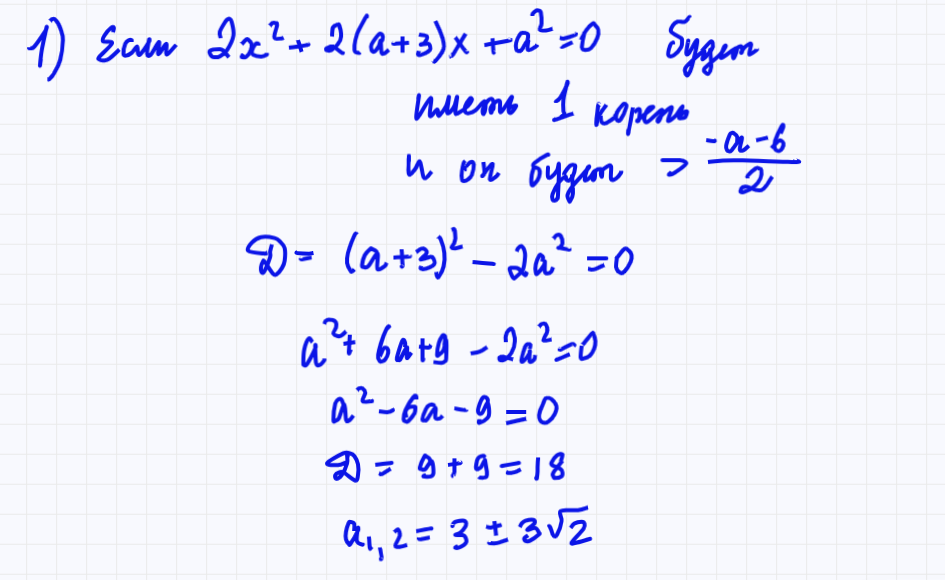 1) Если 2x² + 2(a+3)x + a² = 0 будет
иметь 1 корень
и он будет = (-a-6)/2
D = (a+3)² - 2a² = 0
a² + 6a + 9 - 2a² = 0
a² - 6a - 9 = 0
D = 9 + 9 = 18
a₁,₂ = 3 ± 3√2